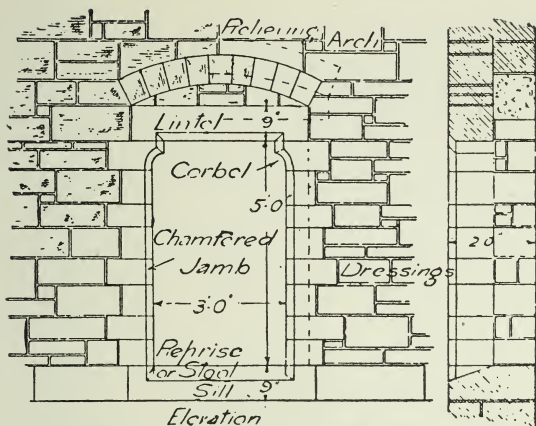 Relieving Arch
Lintel
9"
Corbel
5·0
Chamfered
Jamb
Dressings
2·0
3·0"
Reprise
or Stool
Sill
9"
Elevation